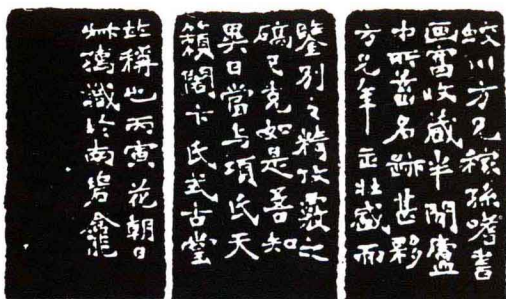 蛟川方兄稼孫嗜書
画富收藏半閒廬
中所蓄名跡甚夥
方兄年正壯盛而
鑒別之精攷覈之
碻已克如是吾知
異日當与項氏天
籟閣卞氏式古堂
並稱也丙寅花朝日
叔孺識於南碧龕